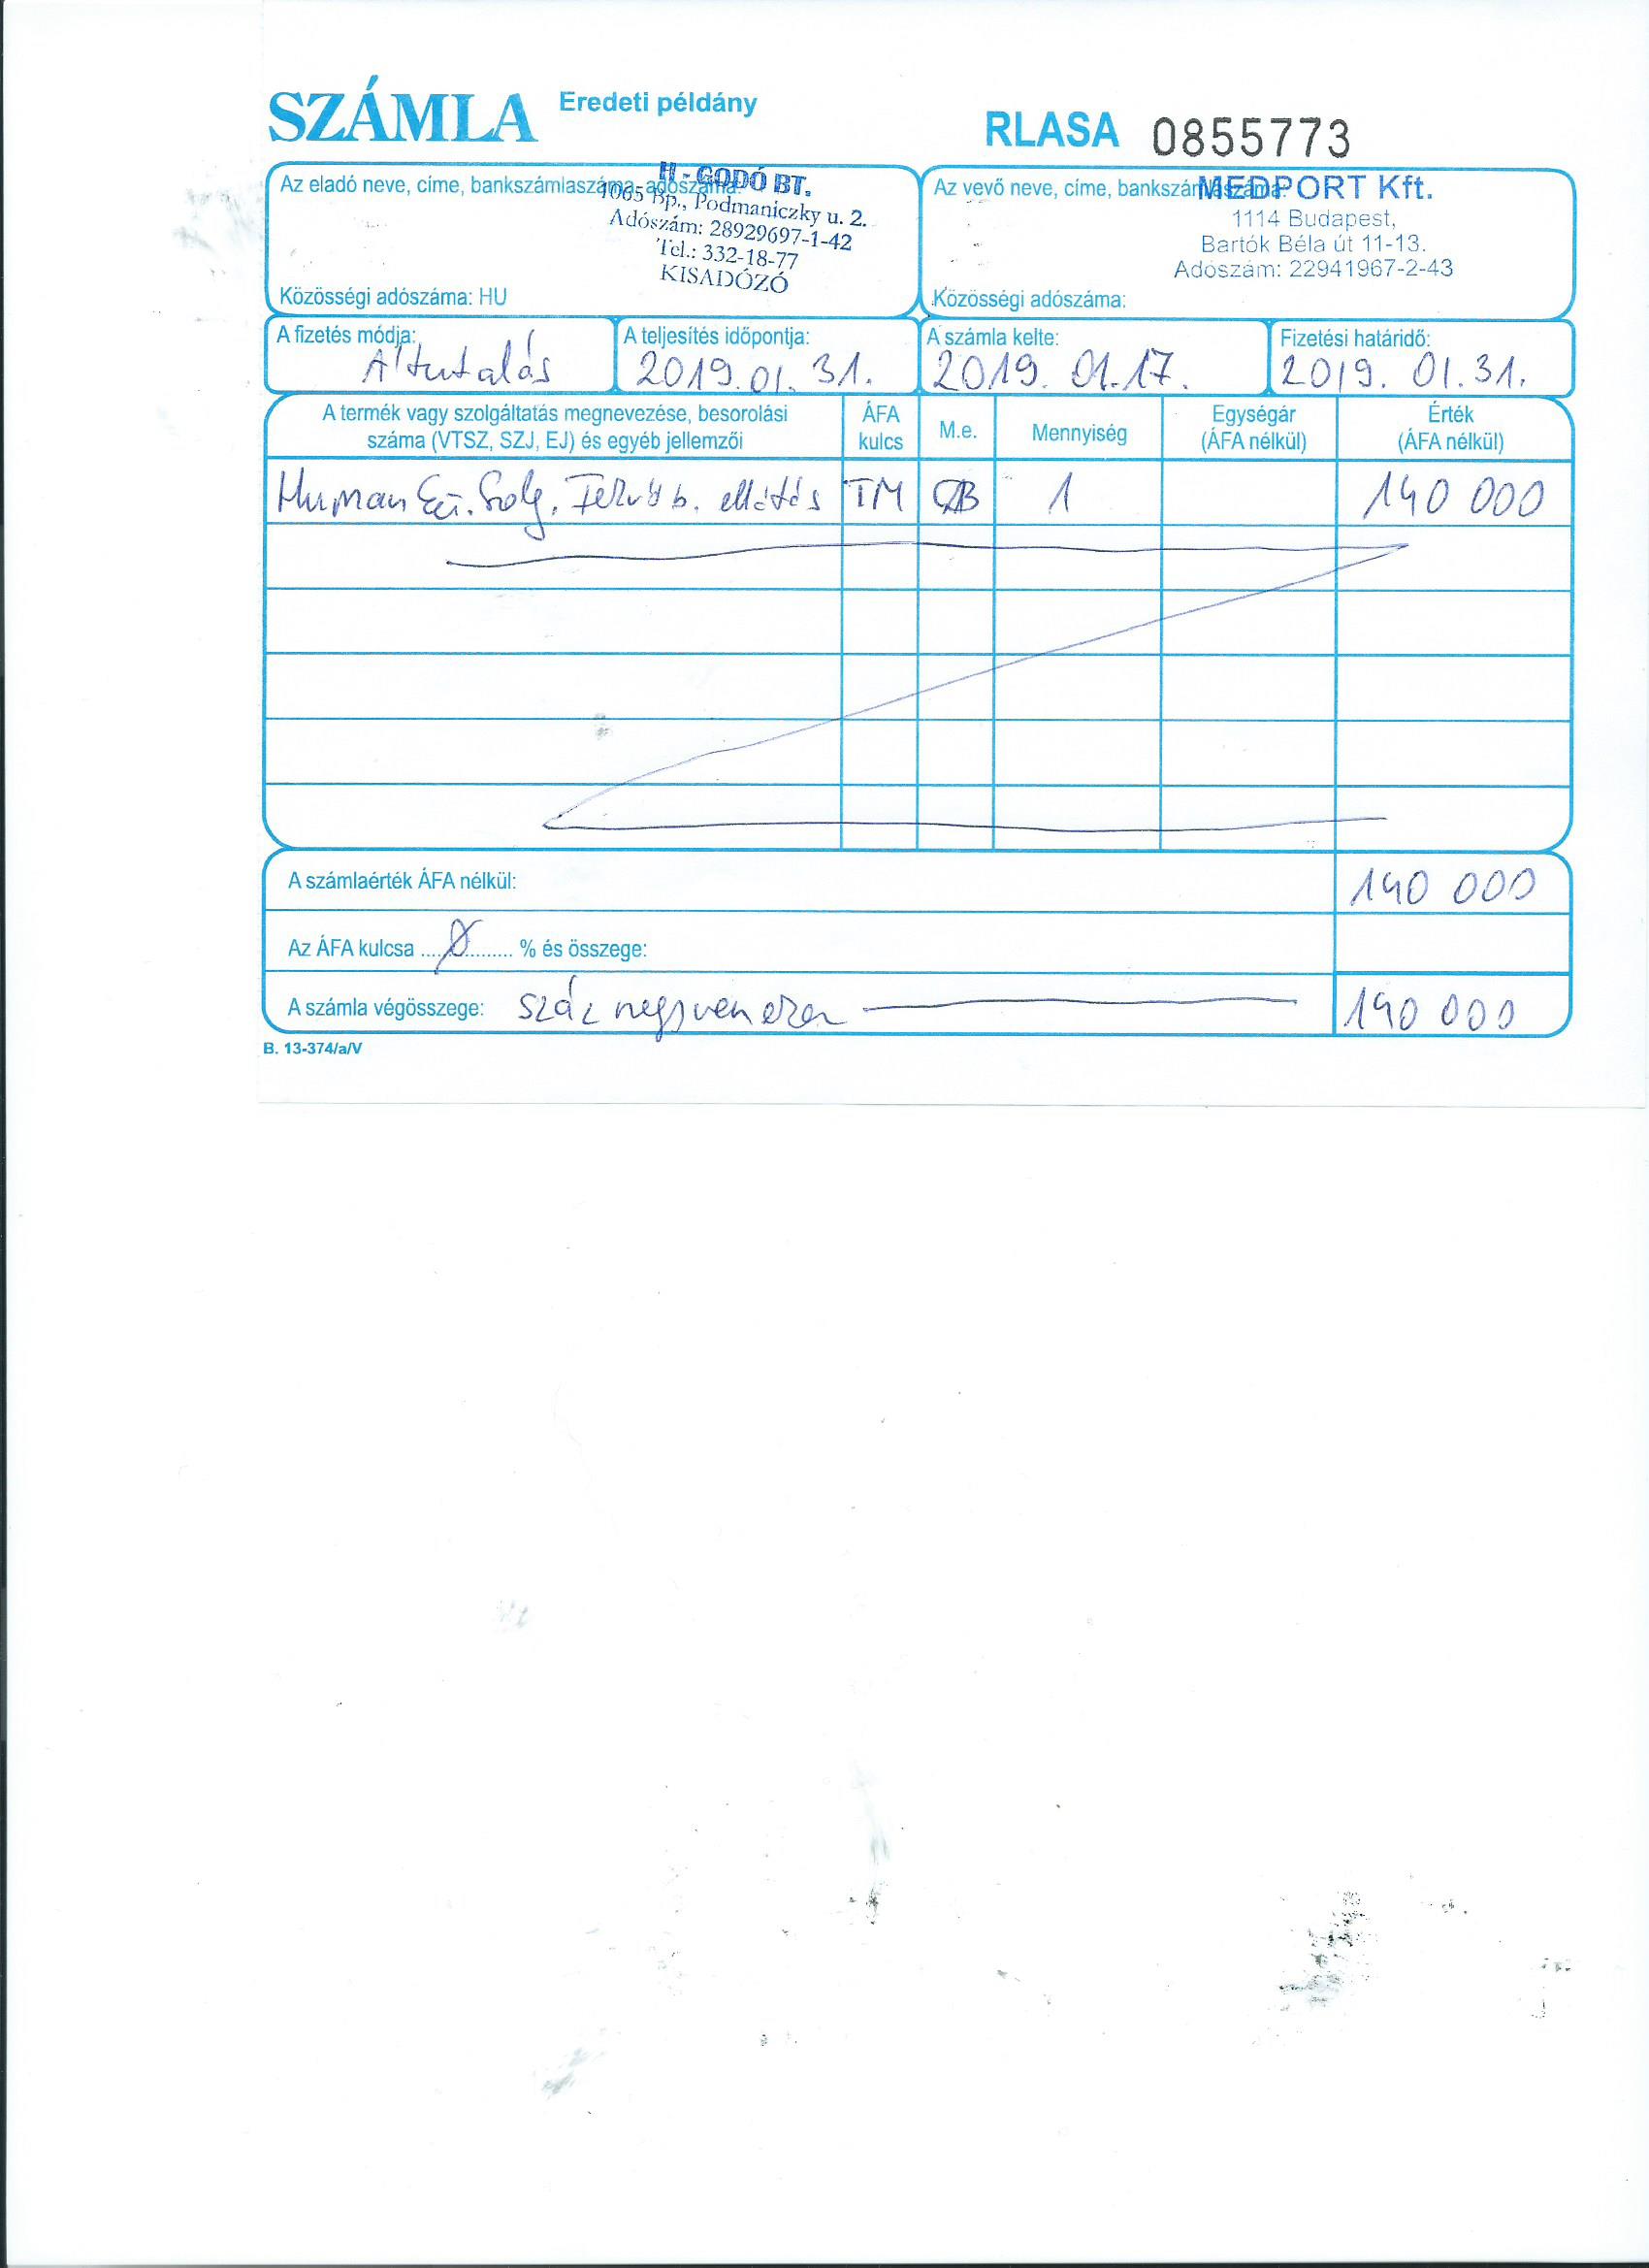 SZÁMLA Eredeti példány
RLASA 0855773
Az eladó neve, címe, bankszámlaszáma, adószáma:
H - GODÓ BT.
1065 Bp., Podmaniczky u. 2.
Adószám: 28929697-1-42
Tel.: 332-18-77
KISADÓZÓ
Közösségi adószáma: HU
Az vevő neve, címe, bankszámlaszáma:
MEDPORT Kft.
1114 Budapest,
Bartók Béla út 11-13.
Adószám: 22941967-2-43
Közösségi adószáma:
A fizetés módja:
Átutalás
A teljesítés időpontja:
2019.01.31.
A számla kelte:
2019.01.17.
Fizetési határidő:
2019.01.31.
A termék vagy szolgáltatás megnevezése, besorolási
száma (VTSZ, SZJ, EJ) és egyéb jellemzői
ÁFA
kulcs
M.e.
Mennyiség
Egységár
(ÁFA nélkül)
Érték
(ÁFA nélkül)
Human Eü. Szolg. ellátás TM 1 140 000
A számlaérték ÁFA nélkül: 140 000
Az ÁFA kulcsa ....0......... % és összege:
A számla végösszege: száznegyvenezer 140 000
B. 13-374/a/V